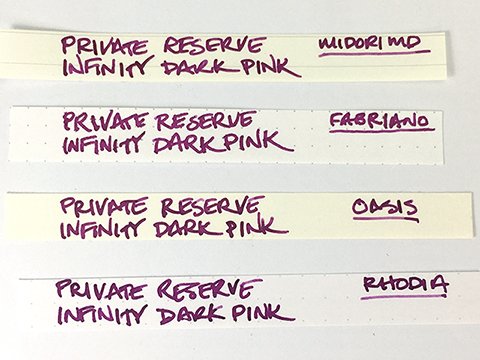 PRIVATE RESERVE MIDORI MD
INFINITY DARK PINK
PRIVATE RESERVE FABRIANO
INFINITY DARK PINK
PRIVATE RESERVE OASIS
INFINITY DARK PINK
PRIVATE RESERVE RHODIA
INFINITY DARK PINK